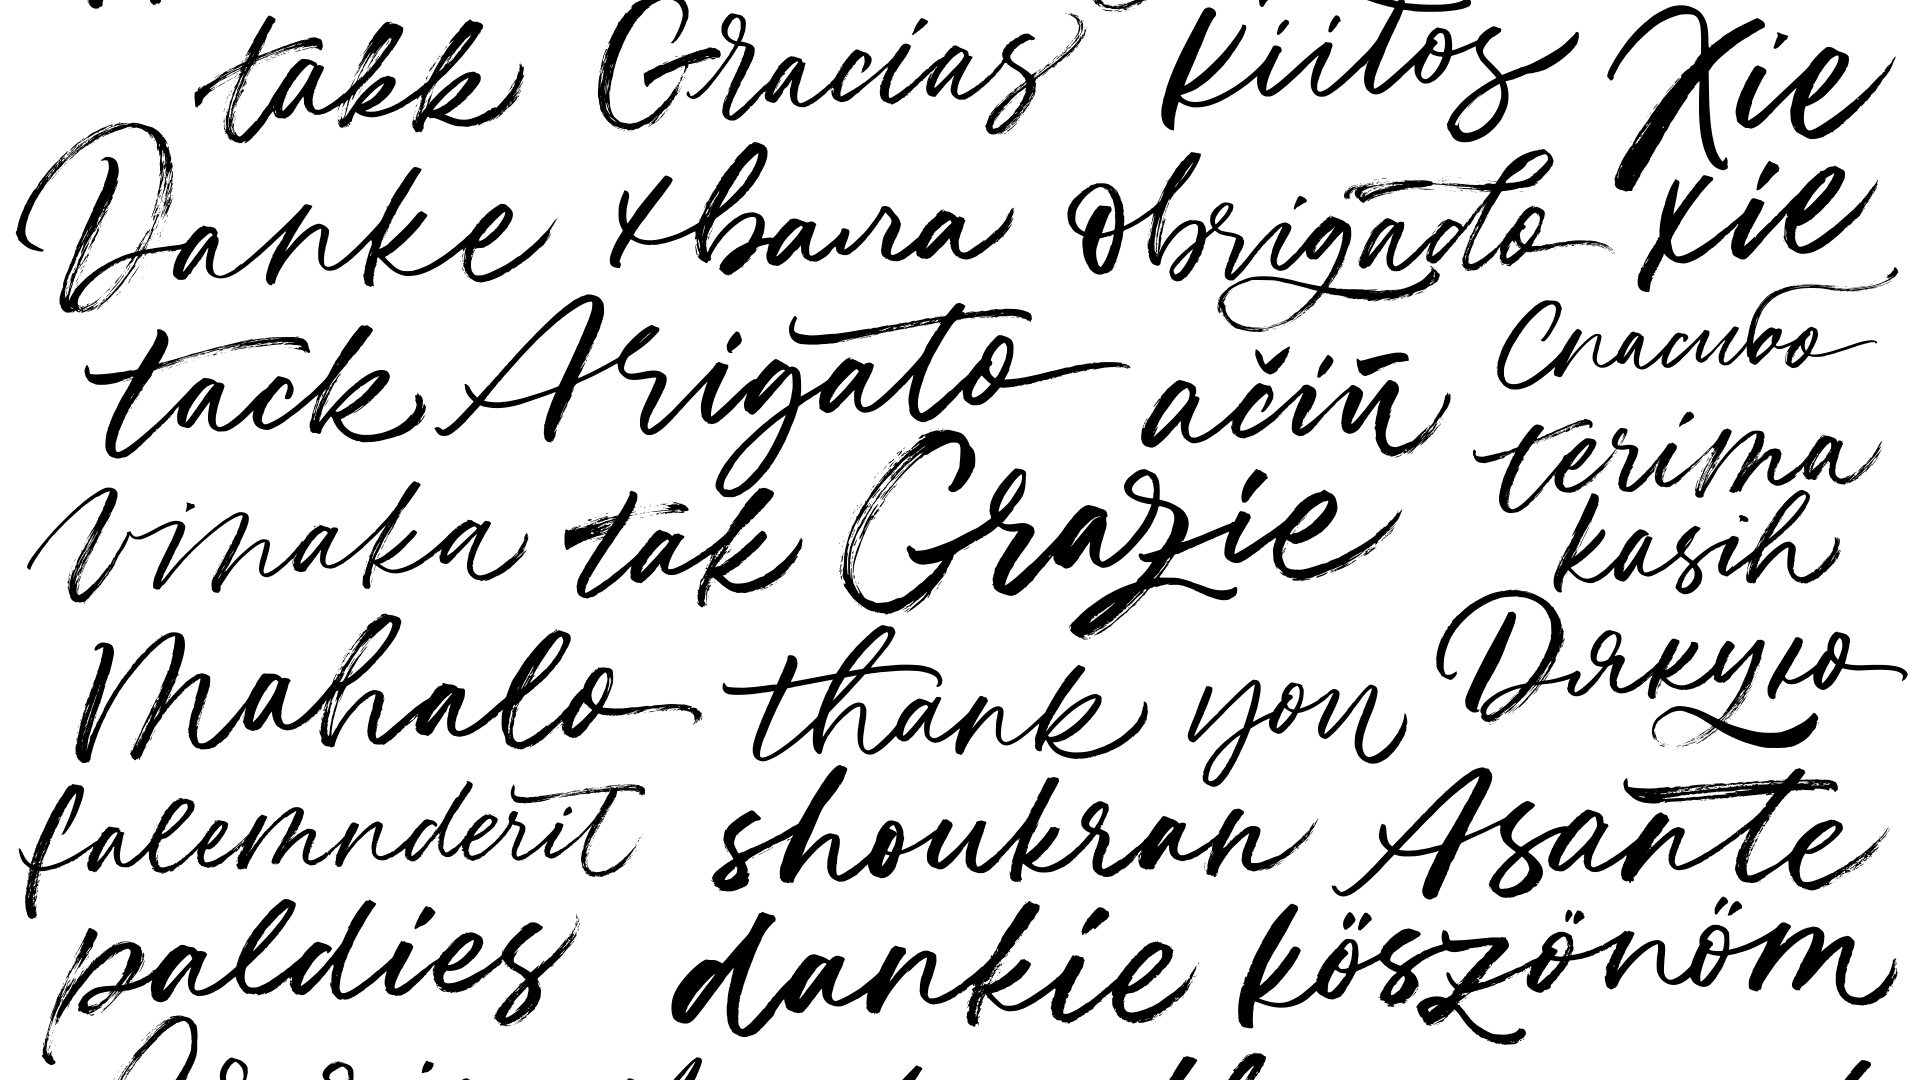 takk Gracias kiitos Xie
Danke хвала obrigado xie
tack Arigato ačiū Спасибо
terima
vinaka tak Grazie kasih
Mahalo thank you Дякую
falemnderit shoukran Asante
paldies dankie köszönöm